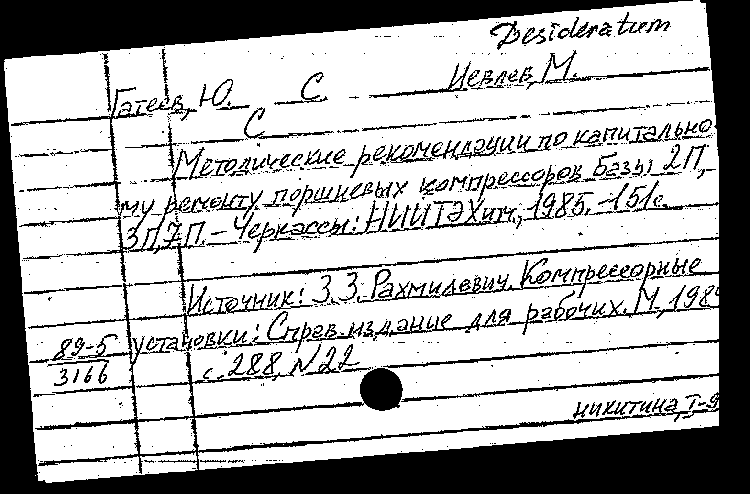 Desideratum
Гатеев, Ю. С Иевлев, М.
С
Методические рекомендации по капитально-
му ремонту поршневых компрессоров базы 2П,
3П, 7П. - Черкассы: НИИТЭХим, 1985. - 151с.
Источник: З.З. Рахмилевич. Компрессорные
установки: Справ. издание для рабочих. М., 198
с. 288, N 22
89-5
3166
никитина,